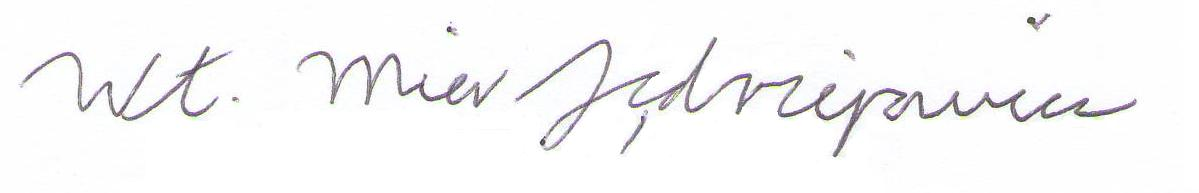 Wł. Mier Jędrzejowicz